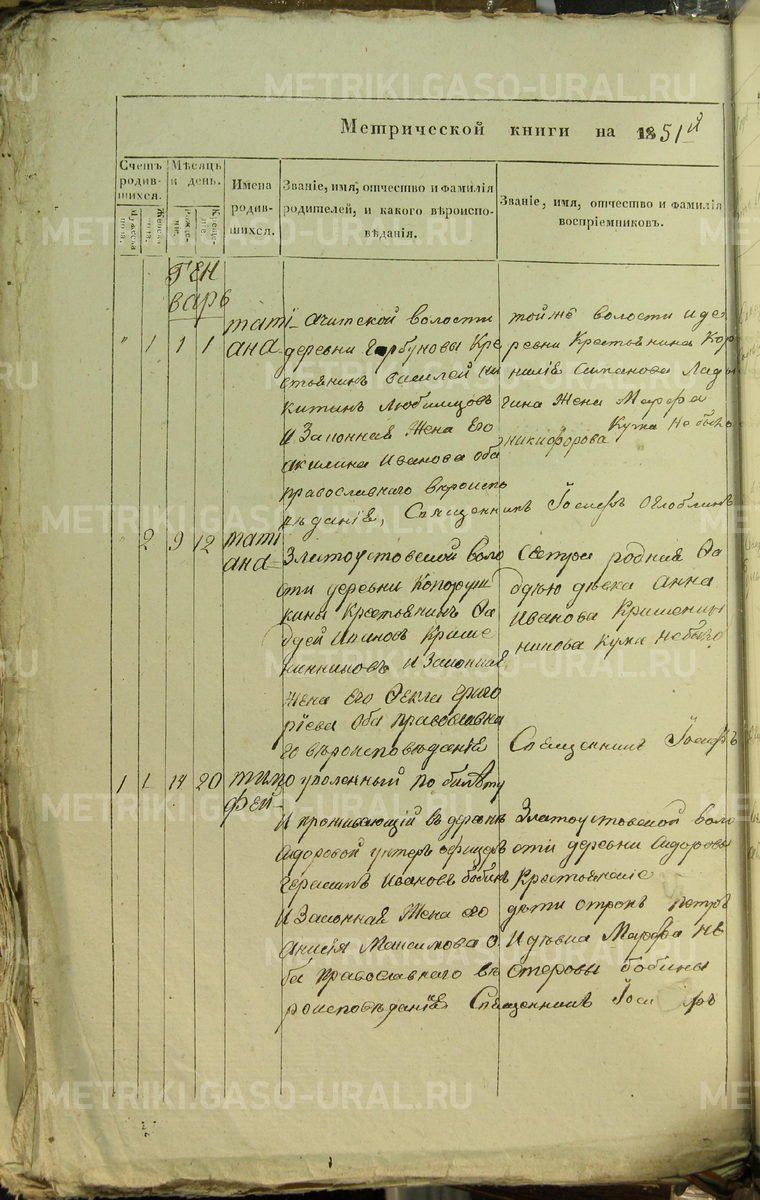 METRIKI.GASO-URAL.RU
Метрической книги на 1851й
Счетъ родившихся.
Мѣсяцъ и день.
Имена родившихся.
Званіе, имя, отчество и фамилія родителей, и какого вѣроисповѣданія.
Званіе, имя, отчество и фамилія воспріемниковъ.
Мужеска пола.
Женска пола.
Рожденіе.
Крещеніе.
Генварь
" 1 1 1
Тати
ана
Ачитской волости
деревни Горбуновы Кре
стьянинъ Василей Ни
китинъ Любимцовъ
И Законная Жена Его
Акилина Иванова оба
православнаго вѣроиспо
вѣданія,
тойже волости и де
ревни Крестьянина Кор
нилія Ладыгина Жена Марфа
Никифорова
Священникъ Іосифъ Оглоблинъ
" 2 9 12
Тати
ана
Златоустовской воло
сти деревни
Крестьянинъ Фа
дѣй Ивановъ Краше
нинниковъ И Законная
Жена его Фекла Григо
ріева оба православна
го вѣроисповѣданія
Сестра родная Фа
дѣю дѣвка Анна
Иванова Крашени
нникова
Священникъ Іосифъ
1 1 14 20
Тимо
фей
уволенный по билѣту
И проживающій въ деревнѣ
Сидоровой унтеръ офицеръ
Герасимъ Ивановъ Бабинъ
И Законная Жена его
Анисія Максимова о
ба православнаго вѣ
роисповѣданія
Златоустовской воло
сти деревни Сидоровы
Крестьянскіе
дѣти отрокъ Петръ
И дѣвица Марфа Не
стеровы Бабины
Священникъ Іосифъ